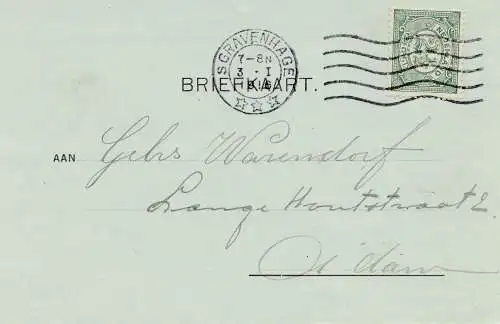 'S GRAVENHAGE
7-8N
3 - I
BRIEFKAART.
AAN Gebrs Warendorf
Lange Houtstraat 2
A'dam